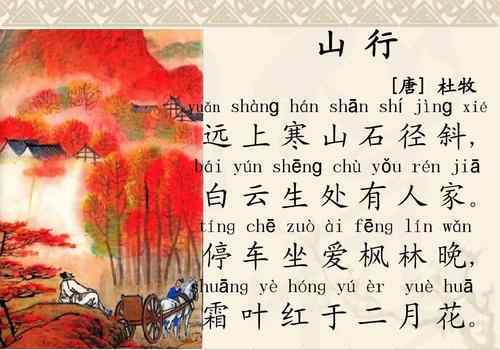 山行
[唐] 杜牧
yuǎn shàng hán shān shí jìng xié
远上寒山石径斜,
bái yún shēng chù yǒu rén jiā
白云生处有人家。
tíng chē zuò ài fēng lín wǎn
停车坐爱枫林晚,
shuāng yè hóng yú èr yuè huā
霜叶红于二月花。